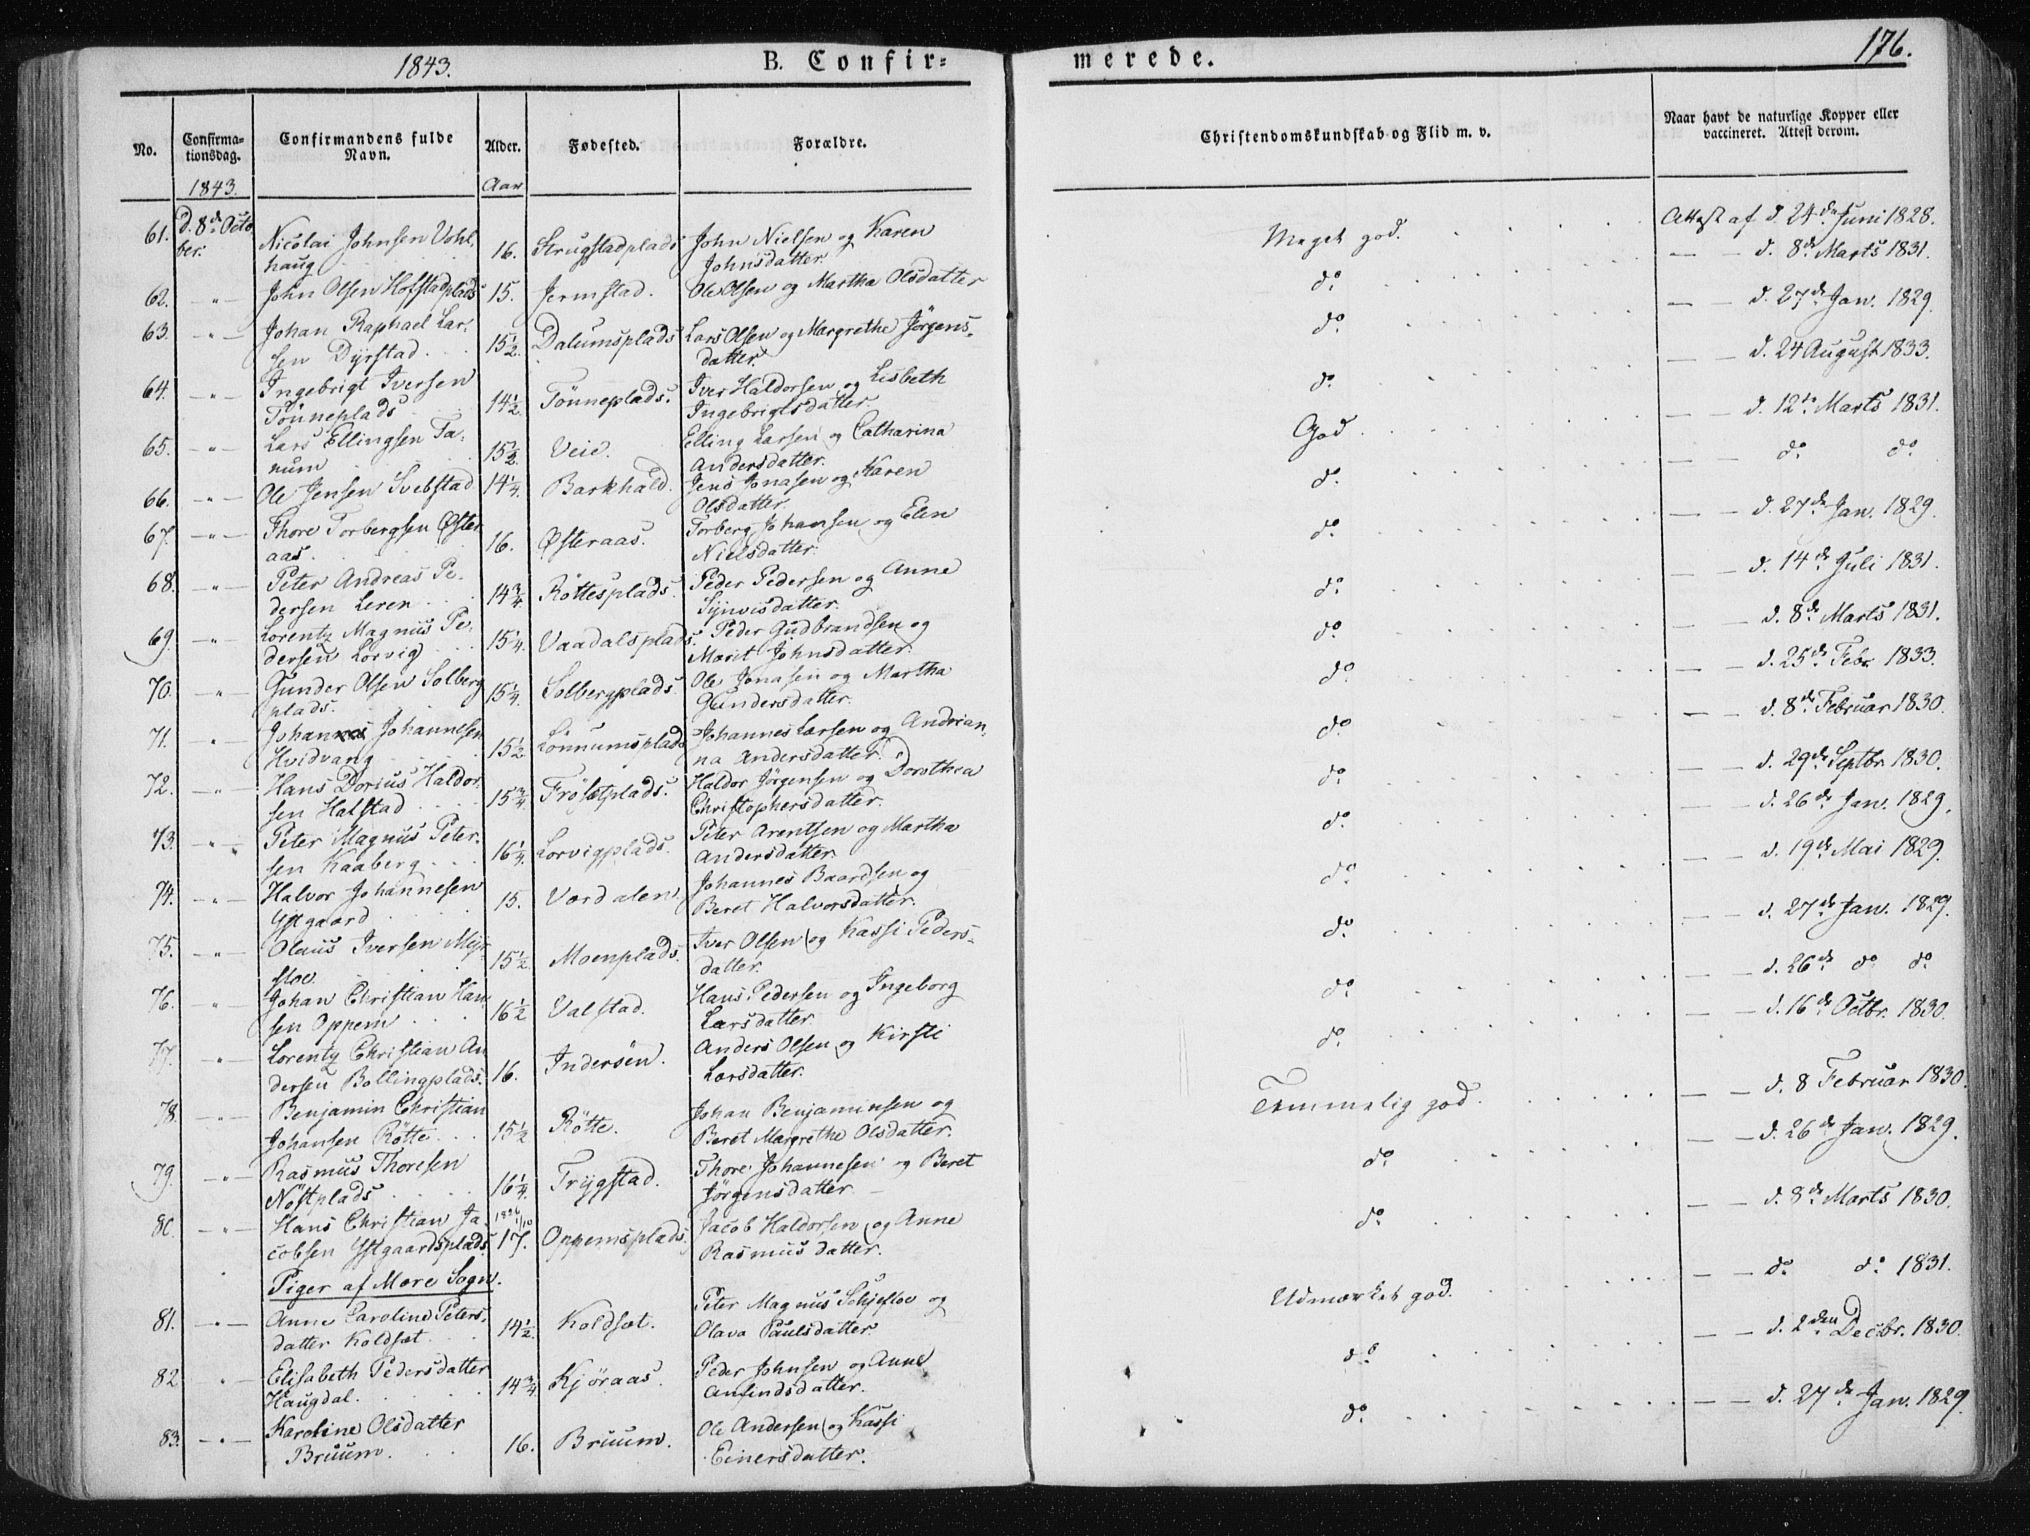 1843.
B. Confir=
merede.
176.
No.
Confirma-
tionsdag.
Confirmandens fulde
Navn.
Alder.
Fødested.
Forældre.
Christendomskundskab og Flid m. v.
Naar havt de naturlige Kopper eller
vaccineret. Attest derom.
1843.
Aar
61. d. 8de Octo Nicolai Johnsen Vohl, 16. Strugstadplads John Nielsen og Karen Meget god. Attest af d. 24de Juni 1828.
ber. haug Johnsdatter.
62. -"- John Olsen Hofstadplads 15. Jermstad. Ole Olsen og Martha Olsdatter do — — d. 8de Marts 1831.
63. -"- Johan Raphael Lar- 15½ Dalumsplads Lars Olsen og Margrethe Jörgens- do — — d. 27de Jan. 1829.
sen Dyrstad datter.
64. -"- Ingebrigt Iversen 14½ Tönneplads. Iver Haldorsen og Lisbeth do — — d. 24 August 1833.
Tönneplads Ingebrigtsdatter
65. -"- Lars Ellingsen Ta- 15 Veie. Elling Larsen og Catharina God — — d. 12te Marts 1831.
num Andersdatter.
66. -"- Ole Jensen Svebstad 14¼ Barkhald. Jens Jonasen og Karen do — — do do
Olsdatter
67. -"- Thore Torbergsen Øster 16. Østeraas. Torberg Johansen og Elen do — — d. 27de Jan. 1829.
aas. Nielsdatter.
68. -"- Peter Andreas Pe- 14¾ Röttesplads. Peder Pedersen og Anne do — — d. 14de Juli 1831.
dersen Leren Synvisdatter.
69. -"- Lorentz Magnus Pe- 15¼ Vaadalsplads. Peder Gudbrandsen og do — — d. 8de Marts 1831.
dersen Lorvig Marit Johnsdatter.
70. -"- Gunder Olsen Solberg 15¼ Solbergplads. Ole Jonasen og Martha do — — d. 25de Febr. 1833.
plads. Gundersdatter.
71. -"- Johannes Johannesen 15½ Lönnumsplads Johannes Larsen og Andrian, do — — d. 8de Februar 1830.
Hvidvang na Andersdatter.
72. -"- Hans Dorius Haldor- 15¾ Frösetplads. Haldor Jörgensen og Dorothea do — — d. 29de Septbr. 1830.
sen Halstad Christophersdatter.
73. -"- Peter Magnus Peter- 16¼ Lorvigplads. Peter Arentsen og Martha do — — d. 26de Jan. 1829.
sen Kaaberg Andersdatter
74. -"- Halvor Johannesen 15. Værdalen. Johannes Baardsen og do — — d. 19de Mai 1829.
Ystgaard Beret Halvorsdatter.
75. -"- Olaus Iversen Myr 15½ Moenplads. Iver Olsen og Kassi Peders- do — — d. 27de Jan. 1829.
sloe. datter.
76. " Johan Christian Han 16½ Valstad. Hans Pedersen og Ingeborg do — — d. 26de do do
sen Oppem Larsdatter.
77. " Lorentz Christian An 16. Inderöen. Anders Olsen og Kirsti do — — d. 16de Octbr. 1830.
dersen Bollingplads. Larsdatter.
78. " Benjamin Christian 15½ Rötte. Johan Benjaminsen og Temmelig god. — — d. 8 Februar 1830.
Johansen Rötte Beret Margrethe Olsdatter.
79. -"- Rasmus Thoresen 16¼ Trygstad. Thore Johannesen og Beret do — — d. 26de Jan. 1829.
Nöstplads Jörgensdatter
80. -"- Hans Christian Ja- 17. Oppemsplads. Jacob Haldorsen og Anne do — — d. 8de Marts 1830.
cobsen Ystgaardsplads. Rasmusdatter.
Piger af Mære Sogn.
81. -"- Anne Caroline Peters- 14½ Koldsæt. Peter Magnus Schjefloe og Udmærket god. — — do do 1831.
datter Koldsæt Olava Paulsdatter.
82 " Elisabeth Pedersdatter 14¾ Kjöraas. Peder Johnsen og Anne do — — d. 2den Decbr. 1830.
Haugdal. Anfindsdatter.
83. -"- Karoline Olsdatter 16. Bruum. Ole Andersen og Kassi do — d. 27de Jan. 1829.
Bruum. Einersdatter.